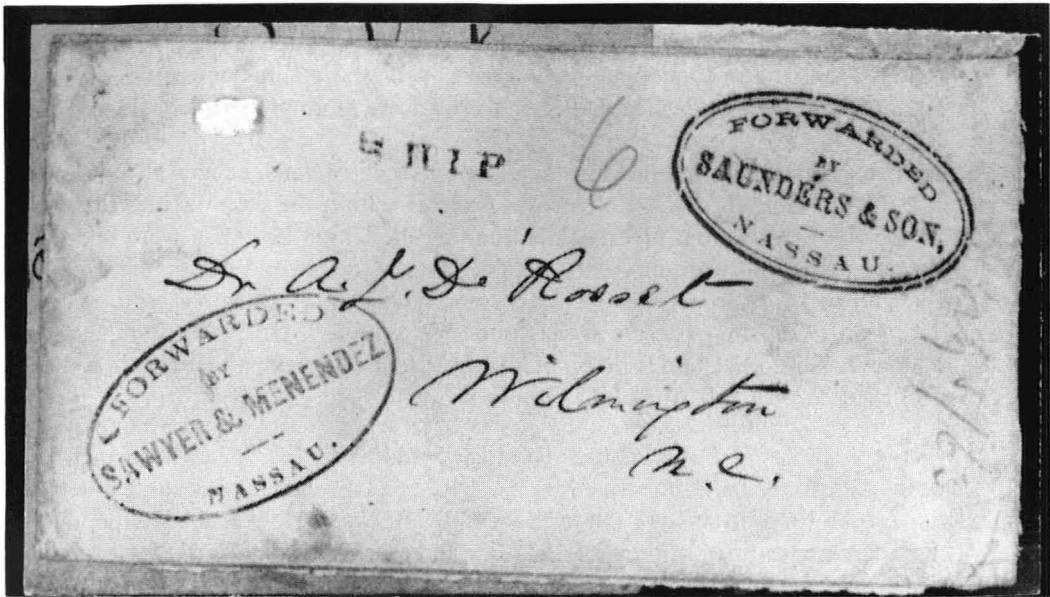 SHIP
6
FORWARDED
BY
SAUNDERS & SON,
NASSAU.
Dr A. J. De Rosset
Wilmington
N.C.
FORWARDED
BY
SAWYER & MENENDEZ
NASSAU.